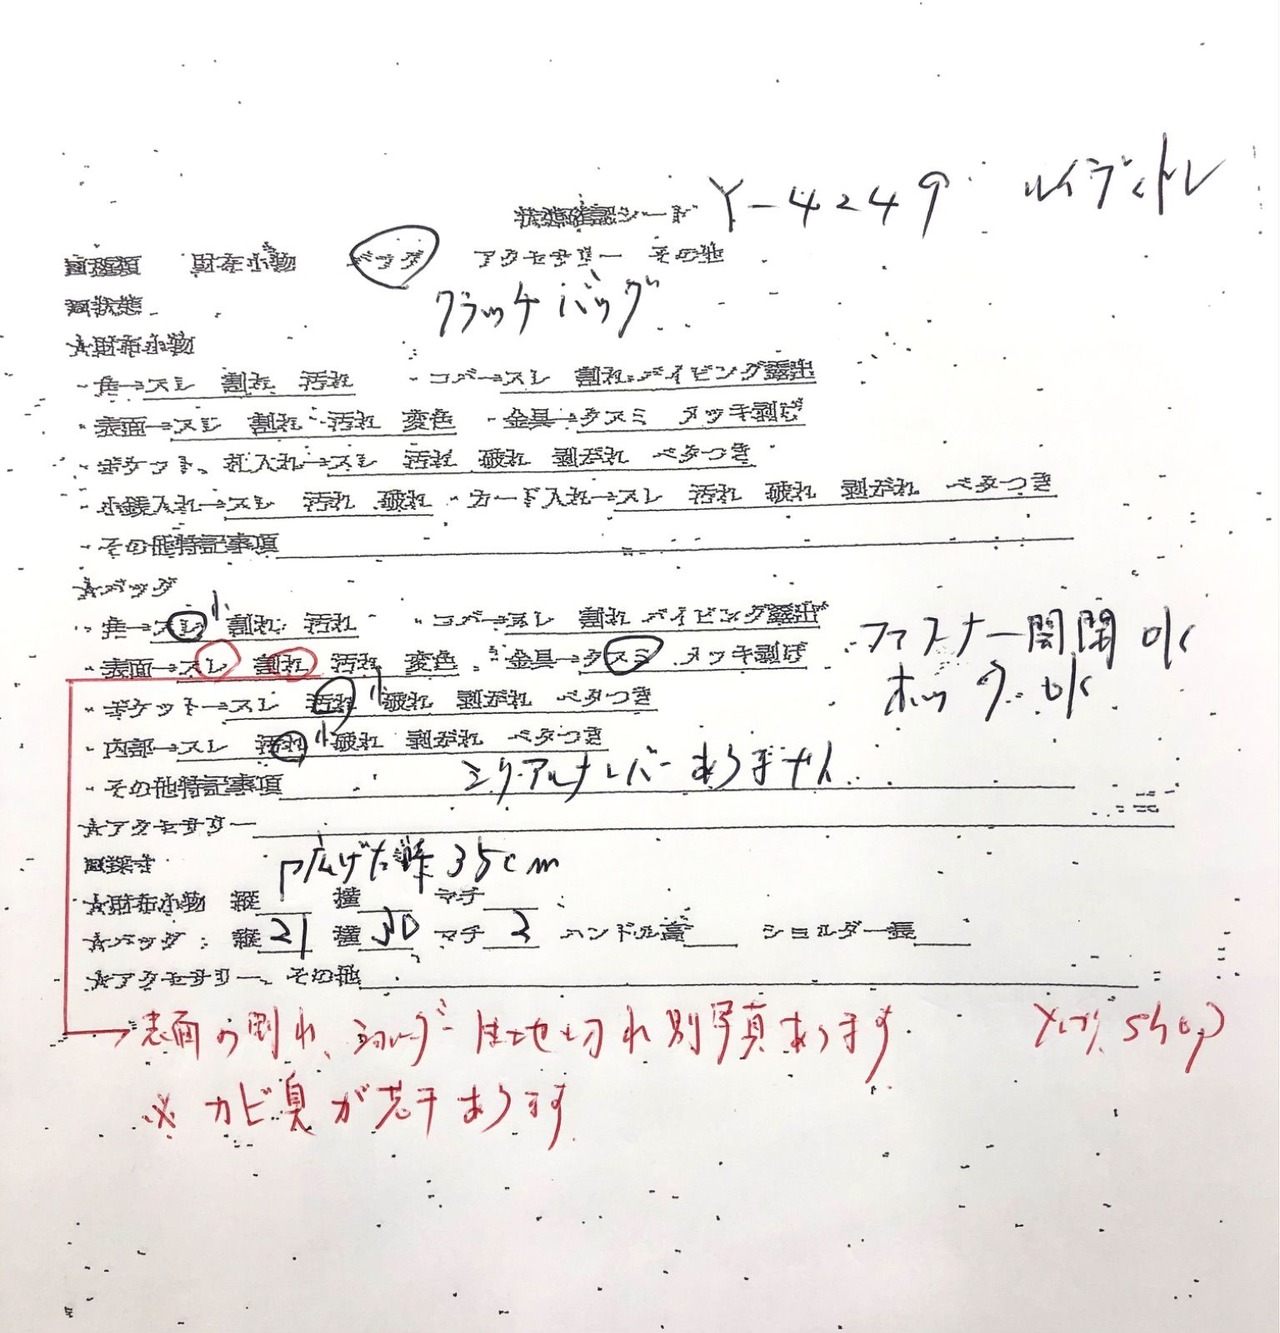 状態確認シート Y-4249 ルイヴィトン
■種類 財布小物 バッグ アクセサリー その他
■状態 クラッチバッグ
☆財布小物
・角→スレ 割れ 汚れ ・コバ→スレ 割れ パイピング露出
・表面→スレ 割れ 汚れ 変色 ・金具→クスミ メッキ剥げ
・ポケット、札入れ→スレ 汚れ 破れ 剥がれ ベタつき
・小銭入れ→スレ 汚れ 破れ ・カード入れ→スレ 汚れ 破れ 剥がれ ベタつき
・その他特記事項
☆バッグ
・角→スレ小 割れ 汚れ ・コバ→スレ 割れ パイピング露出
・表面→スレ 割れ 汚れ 変色 ・金具→クスミ メッキ剥げ
ファスナー開閉 ok
ホック ok
・ポケット→スレ 汚れ小 破れ 剥がれ ベタつき
・内部→スレ 汚れ小 破れ 剥がれ ベタつき
・その他特記事項 シリアルナンバーありません
☆アクセサリー
■採寸 広げた時 35cm
☆財布小物 縦 横 マチ
☆バッグ:縦 21 横 30 マチ 2 ハンドル高 ショルダー長
☆アクセサリー、その他
→表面の割れ、ショルダー 生地切れ 別写真あります
shop
※カビ臭が若干あります